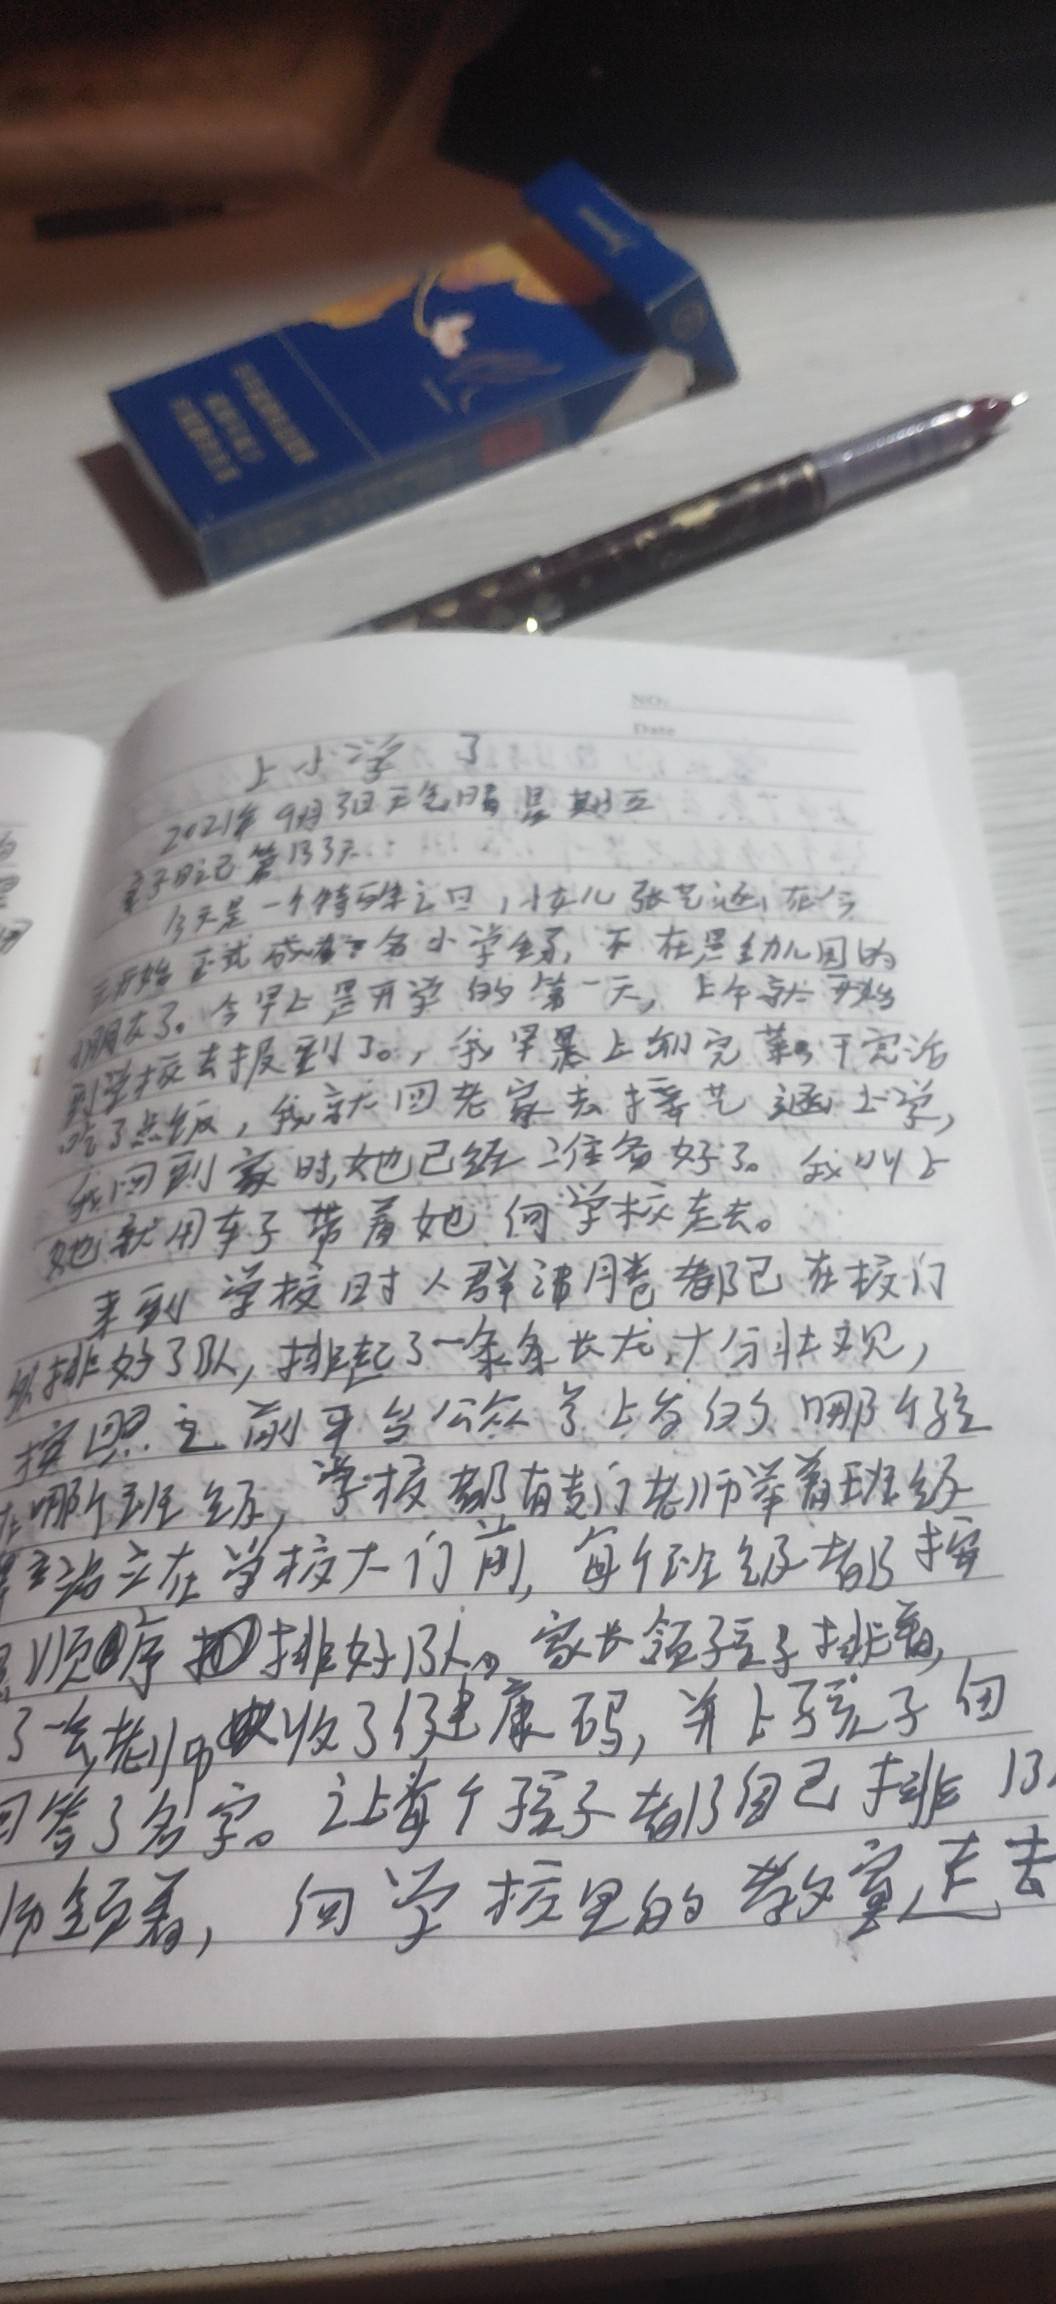 NO:
Date
上小学了
2021年9月3日天气晴星期五
亲子日记第133天:
今天是一个特殊之日,小女儿张艺涵,在今
天开始正式成为一名小学生了,不在是幼儿园的
小朋友了。今早上是开学的第一天,上午就开始
到学校去报到了。,我早晨上午完菜,干完活
吃了点饭,我就回老家去接艺涵上学,
我回到家时,她已经准备好了。我叫上
她就用车子带着她向学校走去。
来到学校时人群沸腾都已在校门
排好了队,排起了一条条长龙,十分壮观,
按照之前平台公众号上发的哪个孩
在哪个班级,学校都有专门老师举着班级
站立在学校大门前,每个班级都按
顺序排好队。家长领子孩子排着,
了一会,老师收了健康码,并让孩子自
回答了名字。让每个孩子都自己排队
师领着,向学校里的教室走去